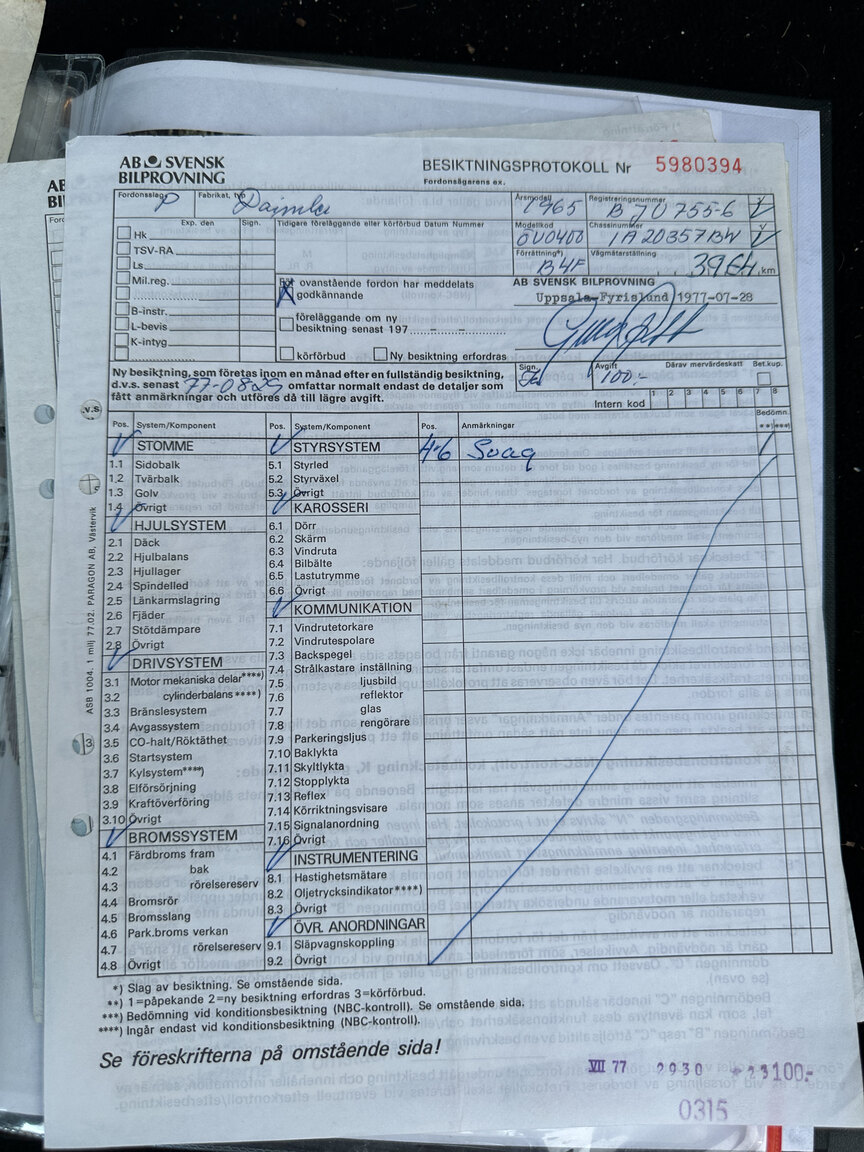 AB SVENSK
BILPROVNING
BESIKTNINGSPROTOKOLL Nr 5980394
Fordonsägarens ex.
Fordonsslag P
Fabrikat, typ Daimler
Årsmodell 1965
Registreringsnummer
Modellkod
Chassinummer 1A20357BW
Förrättning*)
Vägmätarställning
km
Exp. den Sign.
Tidigare föreläggande eller körförbud Datum Nummer
Hk
TSV-RA
Ls
Mil.reg.
B-instr.
L-bevis
K-intyg
ovanstående fordon har meddelats
godkännande
föreläggande om ny
besiktning senast 197
körförbud Ny besiktning erfordras
AB SVENSK BILPROVNING
Uppsala-Fyrislund 1977-07-28
Sign.
Avgift 100:-
Därav mervärdeskatt
Bet.kup.
Intern kod 1 2 3 4 5 6 7 8
Ny besiktning, som företas inom en månad efter en fullständig besiktning,
d.v.s. senast 77-08-29 omfattar normalt endast de detaljer som
fått anmärkningar och utföres då till lägre avgift.
v.s
Pos. System/Komponent
STOMME
1.1 Sidobalk
1.2 Tvärbalk
1.3 Golv
1.4 Övrigt
HJULSYSTEM
2.1 Däck
2.2 Hjulbalans
2.3 Hjullager
2.4 Spindelled
2.5 Länkarmslagring
2.6 Fjäder
2.7 Stötdämpare
2.8 Övrigt
DRIVSYSTEM
3.1 Motor mekaniska delar****)
3.2 cylinderbalans****)
3.3 Bränslesystem
3.4 Avgassystem
3.5 CO-halt/Röktäthet
3.6 Startsystem
3.7 Kylsystem****)
3.8 Elförsörjning
3.9 Kraftöverföring
3.10 Övrigt
BROMSSYSTEM
4.1 Färdbroms fram
4.2 bak
4.3 rörelsereserv
4.4 Bromsrör
4.5 Bromsslang
4.6 Park.broms verkan
4.7 rörelsereserv
4.8 Övrigt
Pos. System/Komponent
STYRSYSTEM
5.1 Styrled
5.2 Styrväxel
5.3 Övrigt
KAROSSERI
6.1 Dörr
6.2 Skärm
6.3 Vindruta
6.4 Bilbälte
6.5 Lastutrymme
6.6 Övrigt
KOMMUNIKATION
7.1 Vindrutetorkare
7.2 Vindrutespolare
7.3 Backspegel
7.4 Strålkastare inställning
7.5 ljusbild
7.6 reflektor
7.7 glas
7.8 rengörare
7.9 Parkeringsljus
7.10 Baklykta
7.11 Skyltlykta
7.12 Stopplykta
7.13 Reflex
7.14 Körriktningsvisare
7.15 Signalanordning
7.16 Övrigt
INSTRUMENTERING
8.1 Hastighetsmätare
8.2 Oljetrycksindikator****)
8.3 Övrigt
ÖVR. ANORDNINGAR
9.1 Släpvagnskoppling
9.2 Övrigt
Pos. Anmärkningar
Bedömn.
**) ***)
4.6 Svag
ASB 1004. 1 milj 77.02. PARAGON AB, Västervik
*) Slag av besiktning. Se omstående sida.
**) 1=påpekande 2=ny besiktning erfordras 3=körförbud.
***) Bedömning vid konditionsbesiktning (NBC-kontroll). Se omstående sida.
****) Ingår endast vid konditionsbesiktning (NBC-kontroll).
Se föreskrifterna på omstående sida!
VII 77 2930
100:-
0315